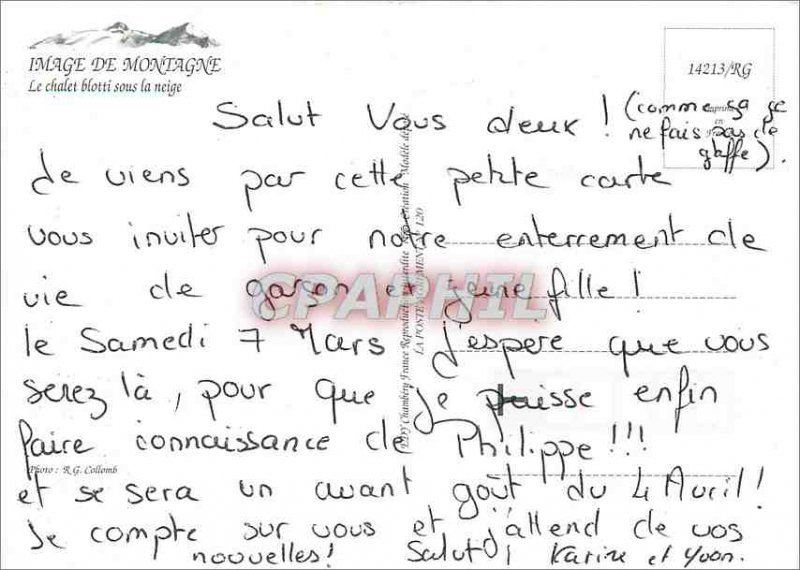 IMAGE DE MONTAGNE
Le chalet blotti sous la neige
14213/RG
Salut Vous deux ! (comme sa je
ne fais pas de
gaffe).
Je viens par cette petite carte
vous inviter pour notre enterrement de
vie de garçon et jeune fille !
le Samedi 7 Mars j'espere que vous
serez là, pour que je puisse enfin
faire connaissance de Philippe !!!
et se sera un avant goût du 4 Avril !
Je compte sur vous et j'attend de vos
nouvelles ! Salut ! Karine et Yvon.
Photo : R.G. Collomb
CPAPHIL